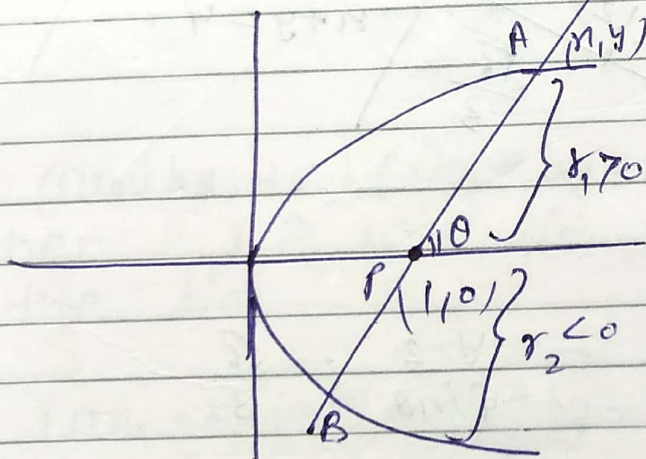 A (x,y)
r₁>0
θ
P (1,0)
r₂<0
B